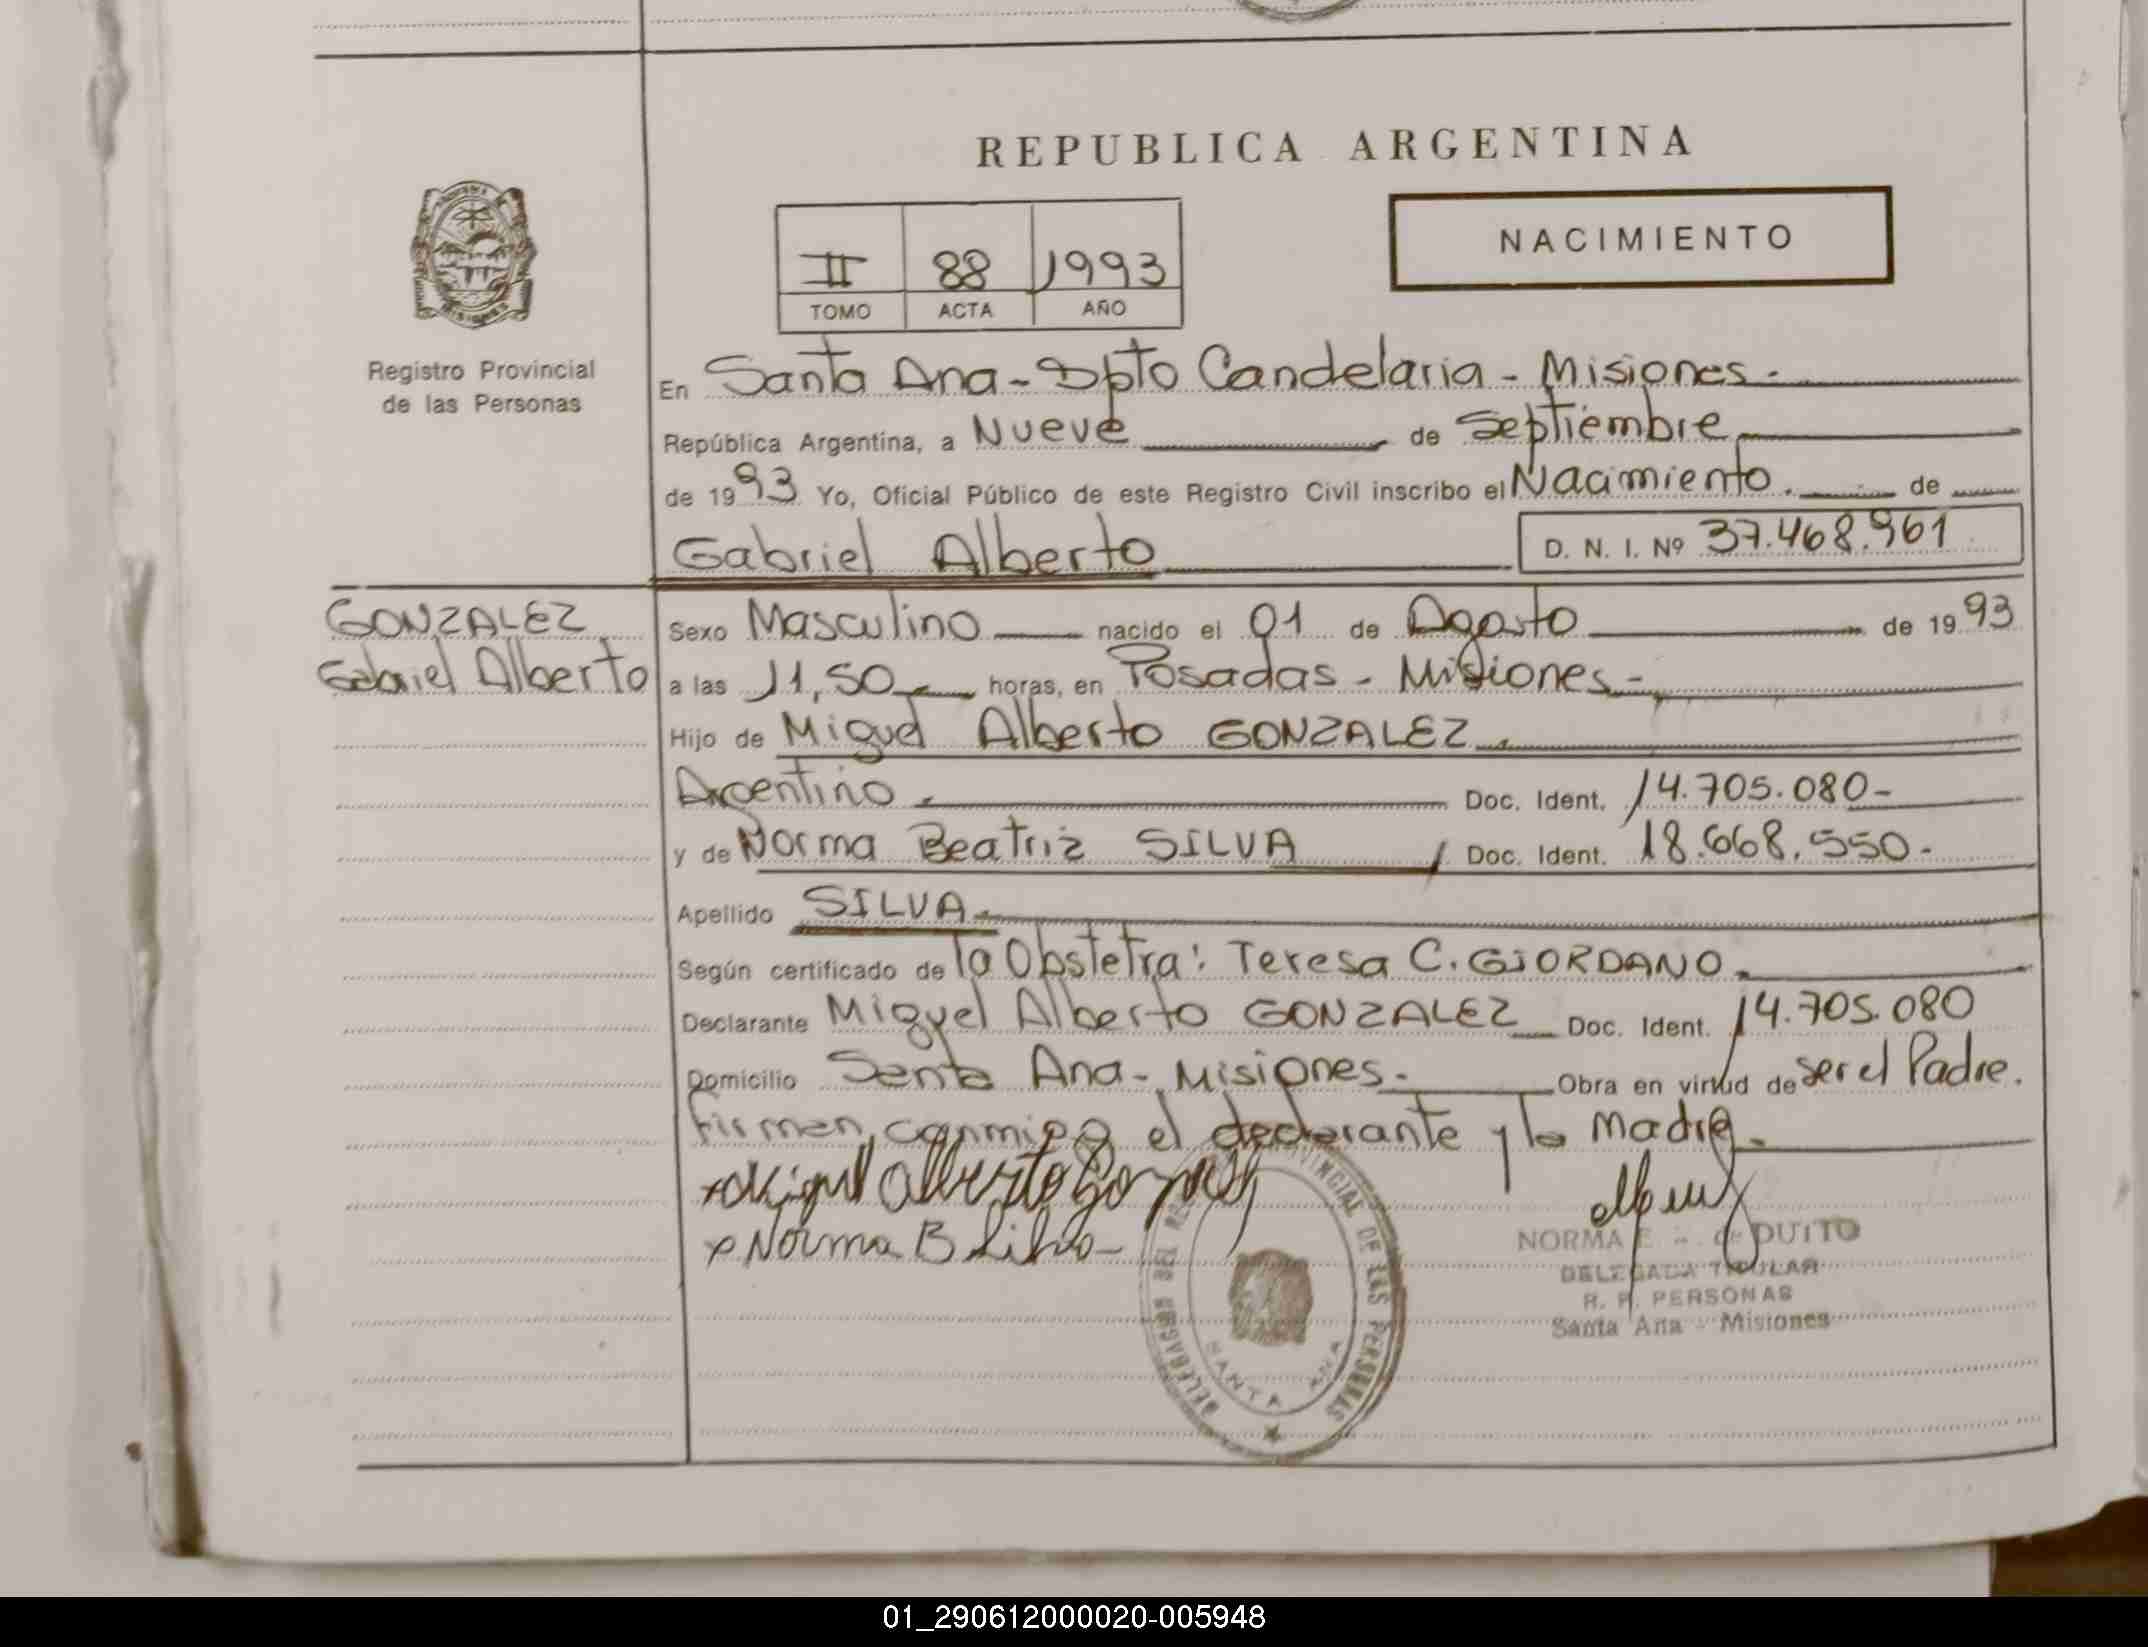 REPUBLICA ARGENTINA
NACIMIENTO
II 88 1993
TOMO ACTA AÑO
Registro Provincial
de las Personas
En Santa Ana - Dpto Candelaria - Misiones.
República Argentina, a Nueve de Septiembre
de 1993 Yo, Oficial Público de este Registro Civil inscribo el Nacimiento. de
Gabriel Alberto D. N. I. Nº 37.468.961
GONZALEZ
Gabriel Alberto
Sexo Masculino nacido el 01 de Agosto de 1993
a las 11,50 horas, en Posadas - Misiones -
Hijo de Miguel Alberto GONZALEZ.
Argentino. Doc. Ident. 14.705.080-
y de Norma Beatriz SILVA Doc. Ident. 18.668.550.
Apellido SILVA.
Según certificado de la Obstetra: Teresa C. GIORDANO.
Declarante Miguel Alberto GONZALEZ Doc. Ident. 14.705.080
Domicilio Santa Ana - Misiones. Obra en virtud de ser el Padre.
firman conmigo el declarante y la Madre.
Miguel Alberto Gonzalez
Norma B Silva
NORMA E de DUITO
DELEGADA TITULAR
R. P. PERSONAS
Santa Ana - Misiones
DELEGACION DEL REG PROVINCIAL DE LAS PERSONAS
SANTA ANA
01_290612000020-005948